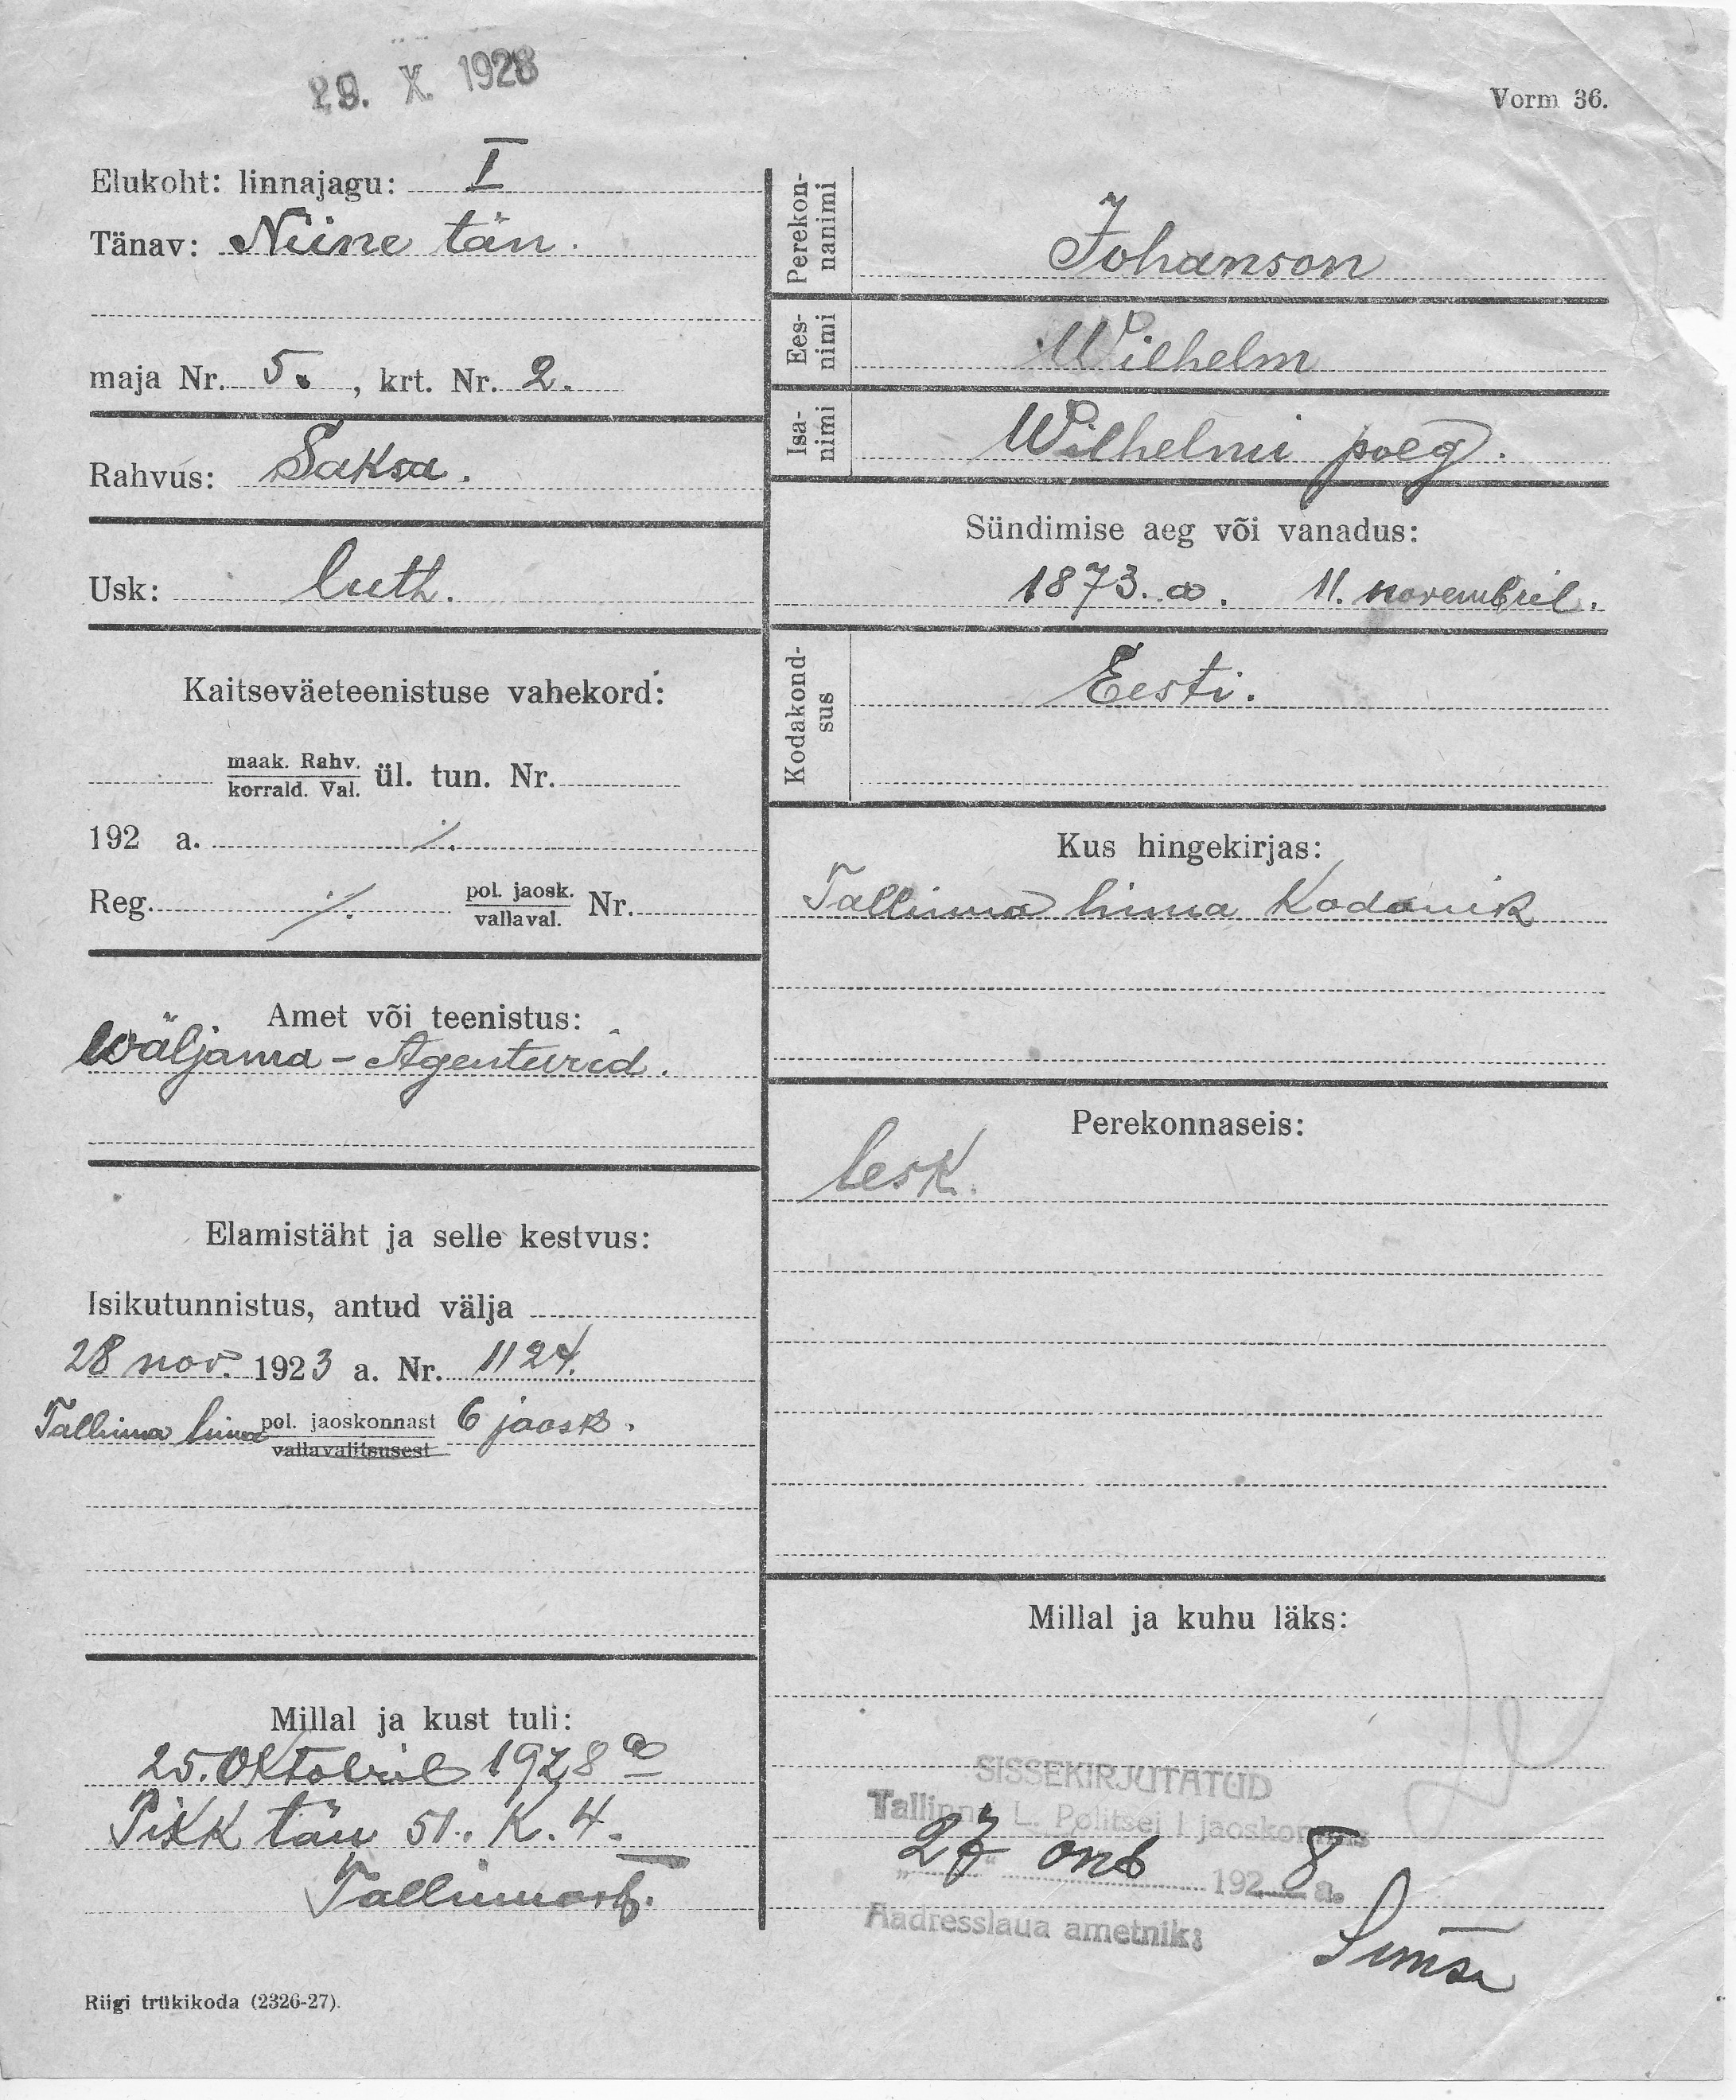 29. X 1928
Vorm 36.
Elukoht: linnajagu: I
Tänav: Niine tän.
maja Nr. 5. , krt. Nr. 2.
Rahvus: Saksa.
Usk: luth.
Kaitseväeteenistuse vahekord:
maak. Rahv.
korrald. Val. ül. tun. Nr.
192 a. ./.
Reg. ./. pol. jaosk.
vallaval. Nr.
Amet või teenistus:
Wäljama - Agentuurid.
Elamistäht ja selle kestvus:
Isikutunnistus, antud välja
28 nov. 1923 a. Nr. 1124.
Tallinna linna pol. jaoskonnast 6 jaosk.
vallavalitsusest
Millal ja kust tuli:
25. Oktobril 1928 a
Pikk tän 51. K. 4.
Tallinnast.
Riigi trükikoda (2326-27).
Perekon-
nanimi
Johanson
Ees-
nimi
Wilhelm
Isa-
nimi
Wilhelmi poeg.
Sündimise aeg või vanadus:
1873. a. 11. novembril.
Kodakond-
sus
Eesti.
Kus hingekirjas:
Tallinna linna Kodanik
Perekonnaseis:
lesk.
Millal ja kuhu läks:
SISSEKIRJUTATUD
Tallinna L. Politsei I jaoskonnas
"27" okt 1928 a.
Aadresslaua ametnik: